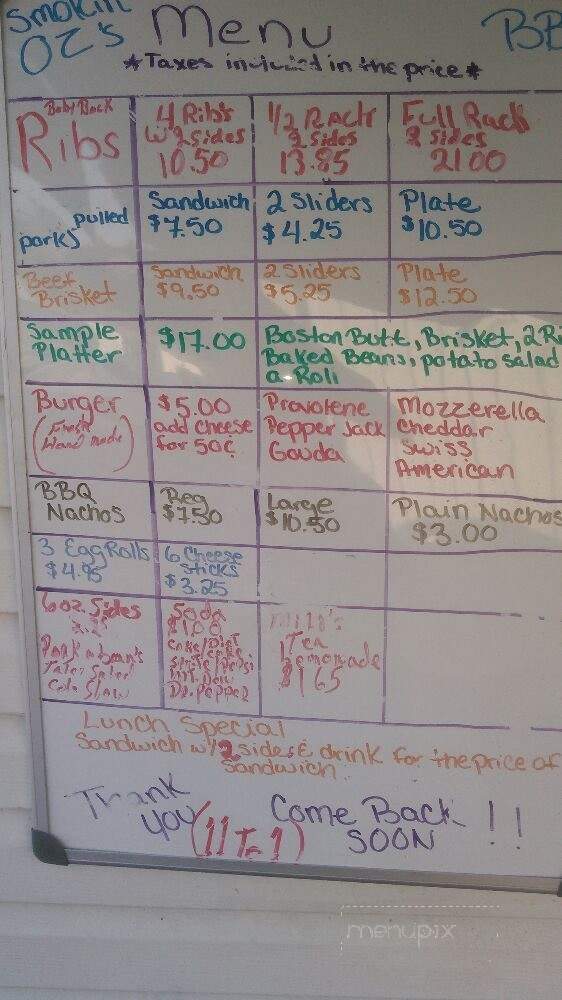 Smokin
OZ's
Menu
BB
*Taxes included in the price*
Baby Back
Ribs
4 Ribs
w/2 sides
10.50
1/2 Rack
2 sides
13.85
Full Rack
2 sides
21.00
pulled
porks
Sandwich
$7.50
2 Sliders
$4.25
Plate
$10.50
Beef
Brisket
Sandwich
$9.50
2 Sliders
$5.25
Plate
$12.50
Sample
Platter
$17.00
Boston Butt, Brisket, 2 Ri
Baked Beans, potato salad
a Roll
Burger
(Fresh
Hand made)
$5.00
add cheese
for 50¢
Provolene
Pepper Jack
Gouda
Mozzerella
Cheddar
Swiss
American
BBQ
Nachos
Reg
$7.50
Large
$10.50
Plain Nachos
$3.00
3 Egg Rolls
$4.95
6 Cheese
Sticks
$3.25
6 oz. Sides
Pork n beans
Tater Salad
Cole Slaw
Soda
$1.00
Coke/Diet
Sprite/Pepsi
Mt. Dew
Dr. Pepper
Tea
Lemonade
$1.65
Lunch Special
Sandwich w/ 2 sides & drink for the price of
Sandwich
Thank
you
(11 To 1)
Come Back
SOON !!
menupix